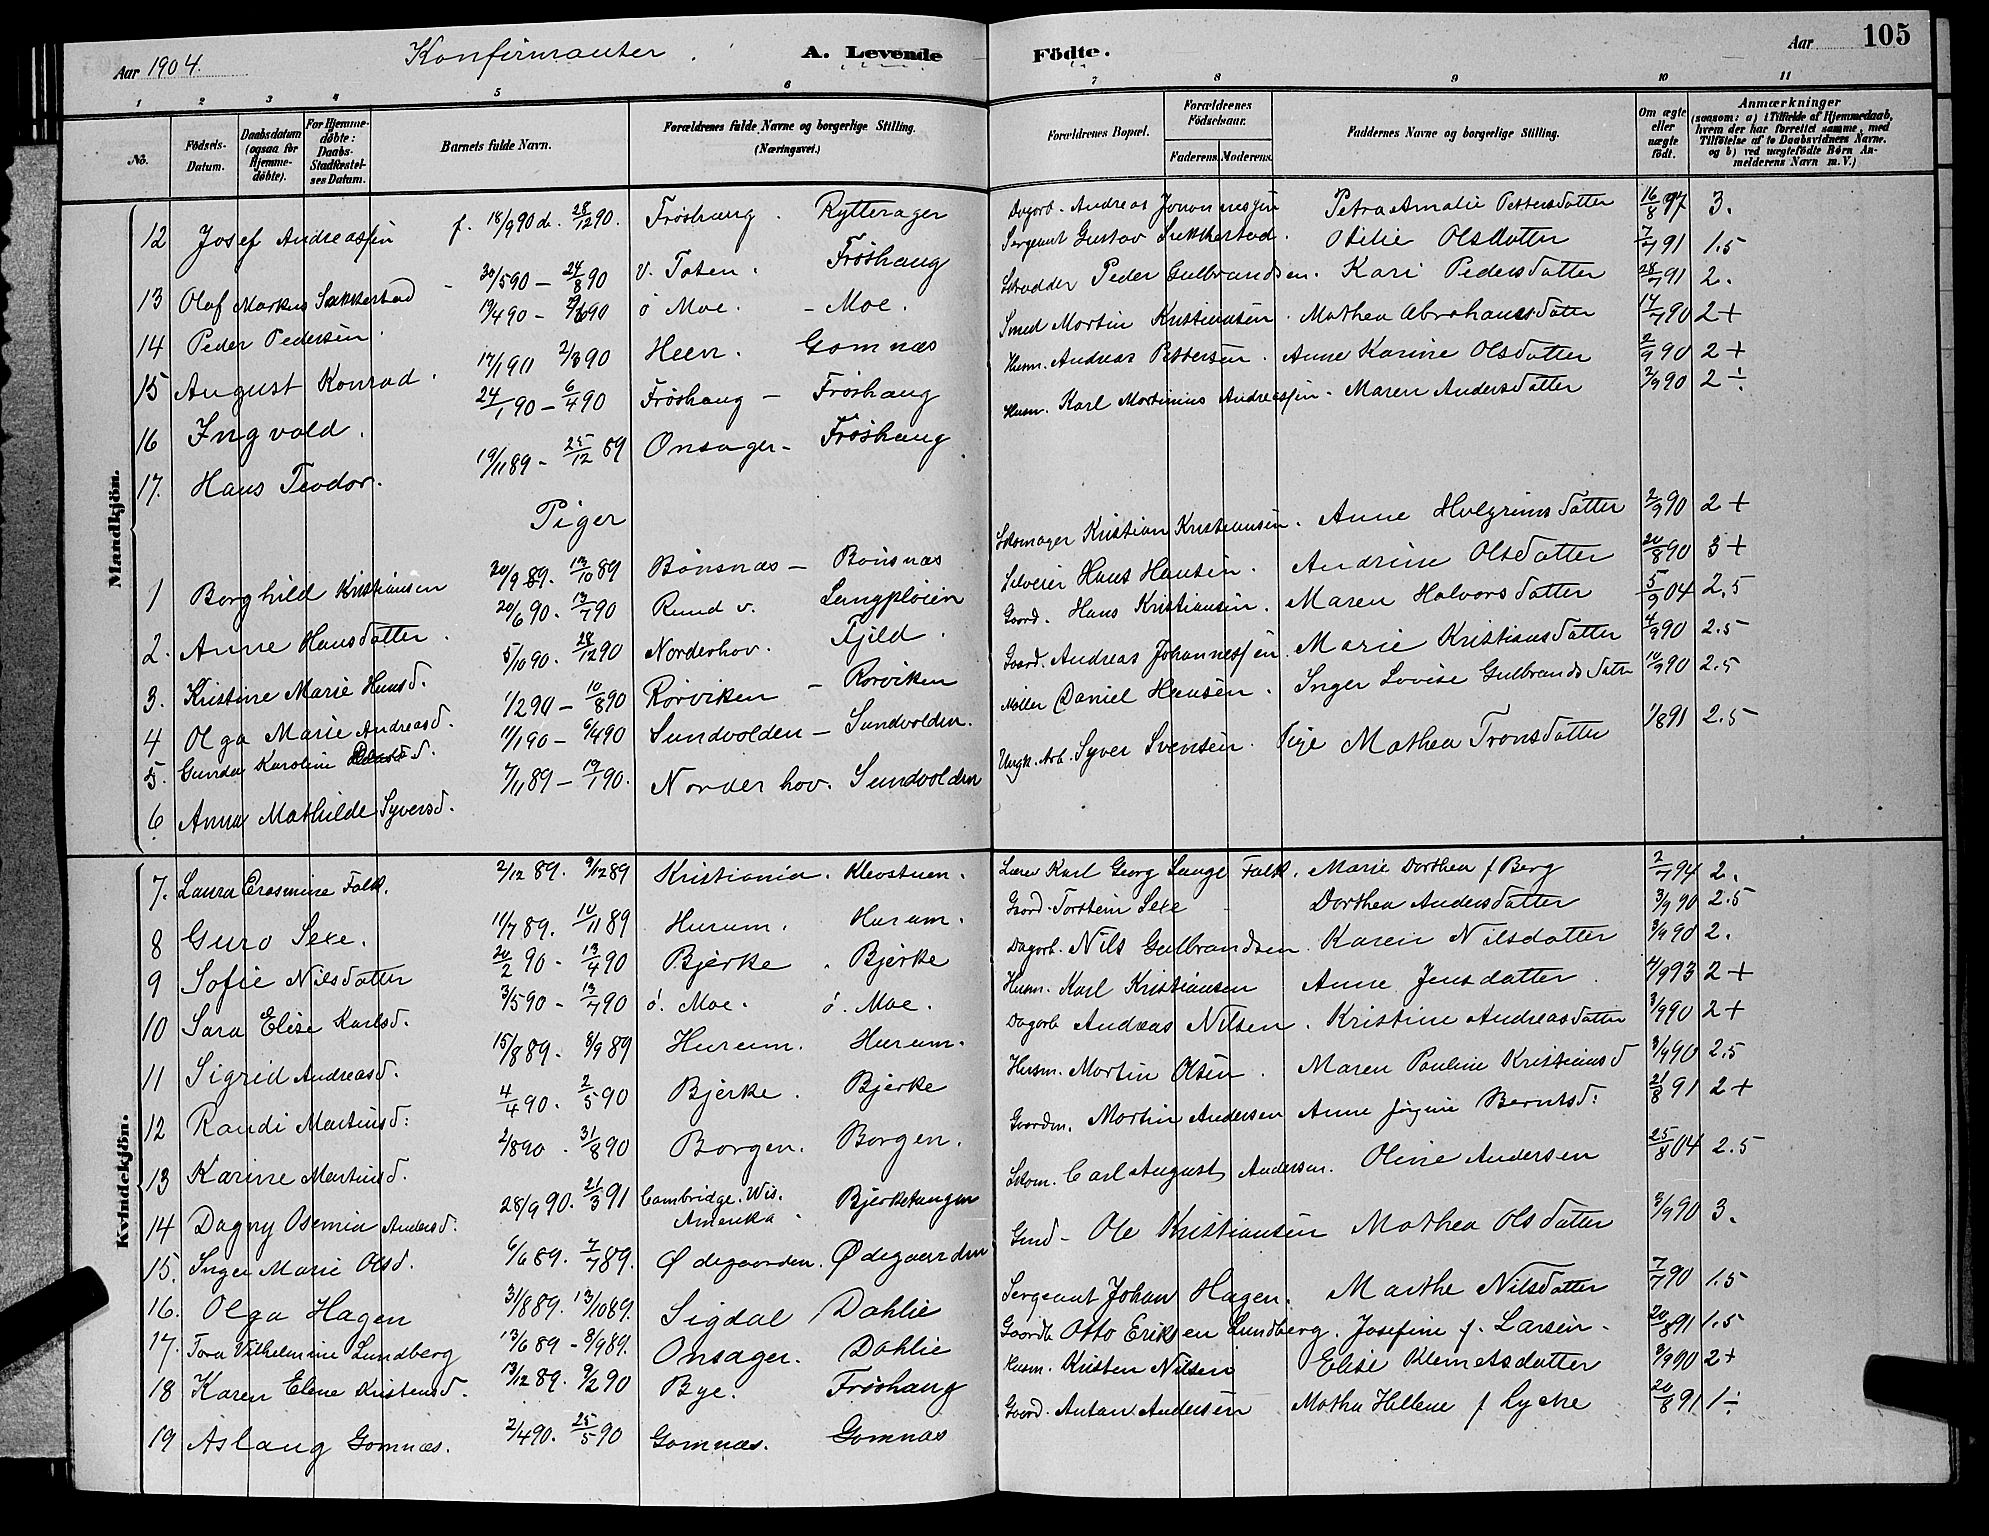 Aar 1904.
Konfirmanter.
A. Levende Födte.
Aar
105
1 2 3 4 5 6 7 8 9 10 11
No.
Födsels-Datum.
Daabsdatum (ogsaa for Hjemme-döbte).
For Hjemme-döbte: Daabs-Stadfæstel-ses Datum.
Barnets fulde Navn.
Forældrenes fulde Navne og borgerlige Stilling. (Næringsvei.)
Forældrenes Bopæl.
Forældrenes Födselsaar.
Faderens. Moderens.
Faddernes Navne og borgerlige Stilling.
Om ægte eller uægte födt.
Anmærkninger (saasom: a) i Tilfælde af Hjemmedaab, hvem der har forrettet samme, med Tilföielse af to Daabsvidners Navne. og b) ved uægtefödte Børn An-melderens Navn m. V.)
Mandkjön.
12 Josef Andreassen f. 18/9 90 d. 28/12 90. Fröshaug. Rytterager Dagarb. Andreas Johannessen Petra Amalie Pettersdatter 16/8 97 3.
13 Olaf Markus Sukkestad - 30/5 90 - 24/8 90 V. Toten. Fröshaug Sergeant Gustav Sukkestad. Otilie Olsdatter 7/7 91 1.5
14 Peder Pedersen. 19/4 90 - 90 ö Moe. - Moe. Skrædder Peder Gulbrandsen. Kari Pedersdatter 28/7 91 2.
15 August Konrad. 17/1 90 2/3 90 Heen. Gomnæs Smed Martin Kristiansen. Mathea Abrahamsdatter 17/7 90 2 +
16 Ingvald. 24/1 90 - 6/4 90 Fröshaug - Fröshaug Husm. Andreas Pettersen. Anne Karine Olsdatter 2/9 90 2 +
17. Hans Teodor. 19/11 89 - 25/12 89 Onsager - Fröshaug Husm. Karl Martinius Andreassen. Maren Andersdatter 2/9 90 2 ÷
Piger
1 Borghild Kristiansen 20/9 89. 13/10 89 Bönsnæs - Bönsnæs Skomager Kristian Kristiansen. Anne Halgrimsdatter 2/9 90 2 +
2. Anne Hansdatter. 20/6 90. 13/7 90 Rund v. Langpløien Selveier Hans Hansen. Andrine Olsdatter 20/8 90 3 +
3. Kristine Marie Hansd. 5/10 90. 28/12 90 Norderhov. Fjeld. Gaard. Hans Kristiansen. Maren Halvorsdatter 5/9 04 2.5
4 Olga Marie Andreasd. 1/2 90 - 10/8 90 Rörviken - Rörviken Gaard. Andreas Johannessen Marie Kristiansdatter 4/9 90 2.5
5. Gunda Karoline d. 11/1 90 - 6/4 90 Sundvolden - Sundvolden. Möller Daniel Hansen. Inger Lovise Gulbrandsdatr 10/9 90 2.5
6. Anna Mathilde Syversd. 7/11 89 - 19/1 90. Norderhov. Sundvolden Ungk. Arb. Syver Svensen. Pige Mathea Tronsdatter 1/8 91 2.5
Kvindekjön.
7. Laura Erasmine Falk. 2/12 89. 9/12 89 Kristiania. Klevstuen. Lærer Karl Georg Lange Falk. Marie Dorthea f Berg 2/7 94 2.
8 Guro Sexe. 11/7 89. 10/11 89 Hurum. Hurum. Gaard. Torstein Sexe Dorthea Andersdatter 3/9 90 2.5
9 Sofie Nilsdatter 20/2 90 - 13/4 90 Bjerke. Bjerke Dagarb. Nils Gulbrandsen. Karen Nilsdatter 3/9 90 2.
10 Sara Elise Karlsd. 3/5 90 - 13/7 90 ö. Moe. ö. Moe. Husm. Karl Kristiansen Anne Jensdatter. 4/9 93 2 +
11 Sigrid Andreasd. 15/8 89. 8/9 89 Hurum. Hurum. Dagarb Andreas Nilsen. Kristine Andreasdatter 3/9 90 2 +
12 Randi Martinsd. 4/4 90. 2/5 90 Bjerke. Bjerke Husm. Martin Olsen. Maren Pauline Kristiansd 3/9 90 2.5
13 Karine Martinsd. 2/8 90. 31/8 90 Borgen. Borgen. Gaardm. Martin Andersen Anne Jörgine Berntsd. 21/8 91 2 +
14 Dagny Osemia Andersd. 28/9 90. 21/3 91 Cambridge. Wis. Amerika. Bjerketangen Skom. Carl August Andersen. Oline Andersen 25/8 04 2.5
15. Inger Marie Olsd. 6/6 89. 7/7 89. Ødegaarden. Ødegaarden Gmd - Ole Kristiansen Mathea Olsdatter 3/9 90 3.
16. Olga Hagen 31/8 89. 13/10 89. Sigdal Dahlie Sergeant Johan Hagen. Marthe Nilsdatter 7/7 90 1.5
17. Tora Vilhelmine Lundberg 13/6 89 - 8/9 89. Onsager. Dahlie Gaardb. Otto Eriksen Lundberg. Josefine f. Larsen. 20/8 91 1.5
18 Karen Elene Kristensd. 13/12 89. 9/2 90 Bye. Fröshaug Husm. Kristen Nilsen Elise Klemetsdatter 3/9 90 2 +
19 Aslaug Gomnæs. 2/4 90. 25/5 90 Gomnæs. Gomnæs Gaard. Anton Andersen Mathea Hellene f Lycke 20/8 91 1 ÷